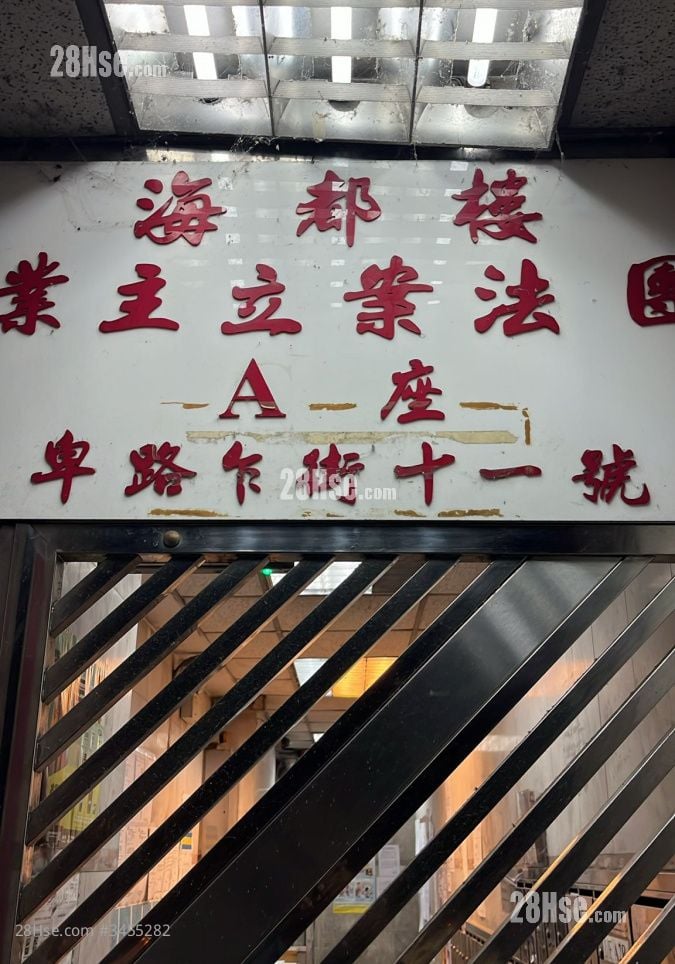 28Hse.com
海都樓
業主立案法團
A座
卑路乍街十一號
28Hse.com
28Hse.com
28Hse.com #3455282